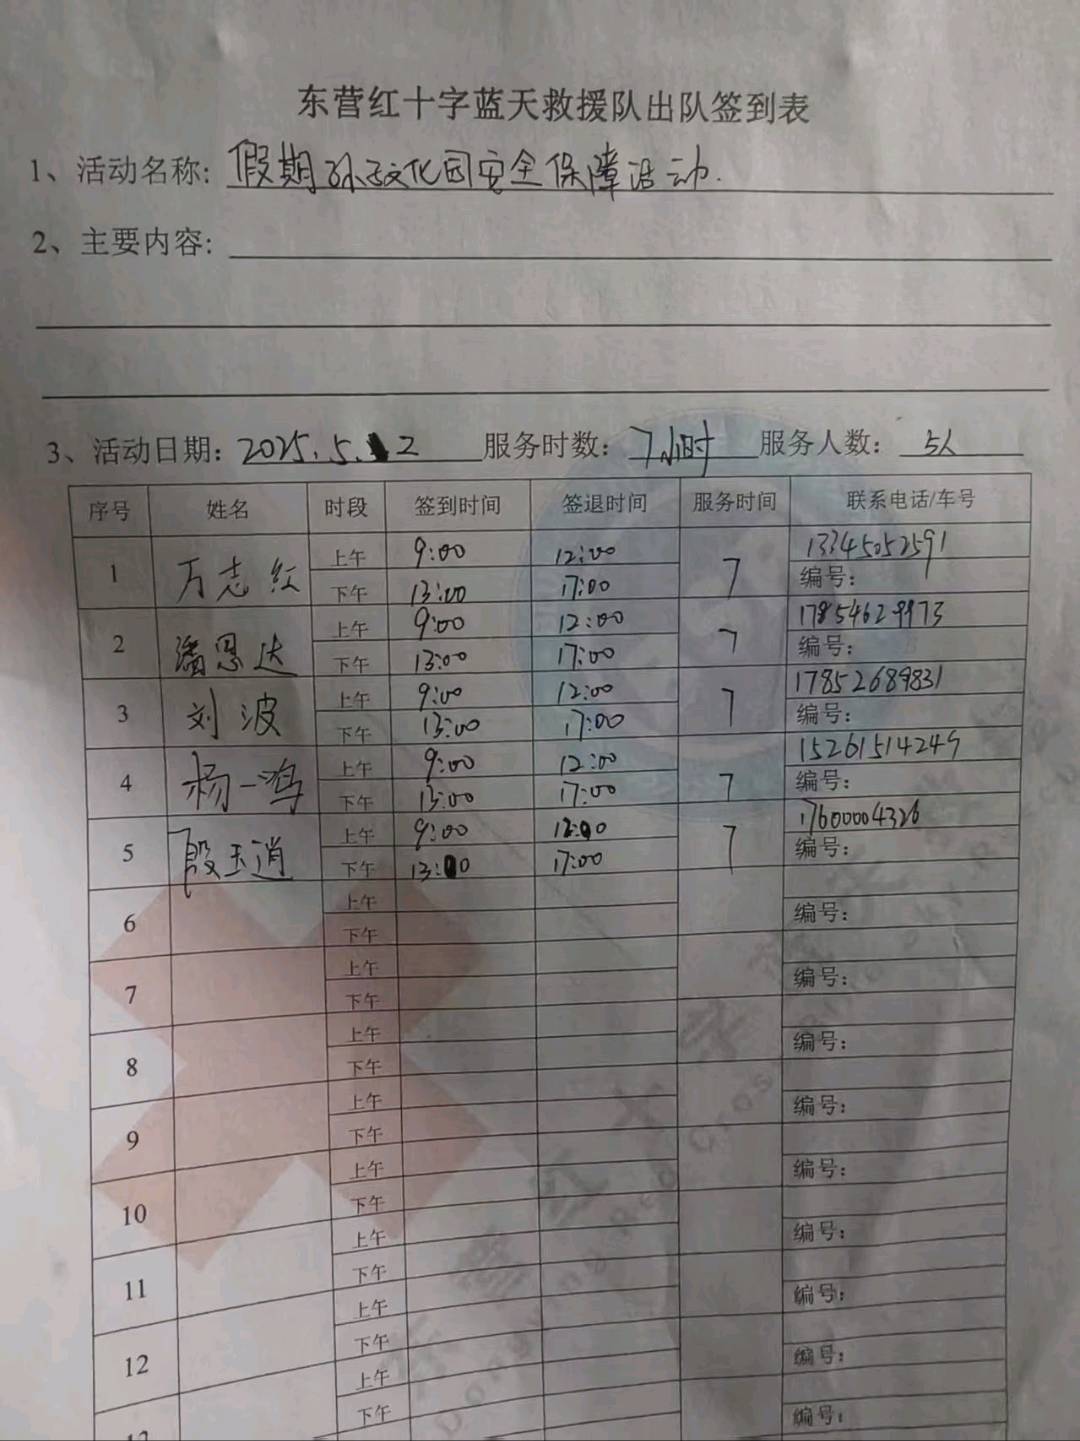 东营红十字蓝天救援队出队签到表
1、活动名称: 假期孙子文化园安全保障活动.
2、主要内容:
3、活动日期: 2025.5.2 服务时数: 7小时 服务人数: 5人
序号 姓名 时段 签到时间 签退时间 服务时间 联系电话/车号
1 万志红 上午 9:00 12:00 7 13345052591
下午 13:00 17:00 编号:
2 潘恩达 上午 9:00 12:00 7 17854629973
下午 13:00 17:00 编号:
3 刘波 上午 9:00 12:00 7 17852689831
下午 13:00 17:00 编号:
4 杨一鸿 上午 9:00 12:00 7 15261514249
下午 13:00 17:00 编号:
5 殷玉逍 上午 9:00 12:00 7 17600004326
下午 13:00 17:00 编号:
6 上午
下午 编号:
7 上午
下午 编号:
8 上午
下午 编号:
9 上午
下午 编号:
10 上午
下午 编号:
11 上午
下午 编号:
12 上午
下午 编号:
上午
下午 编号: